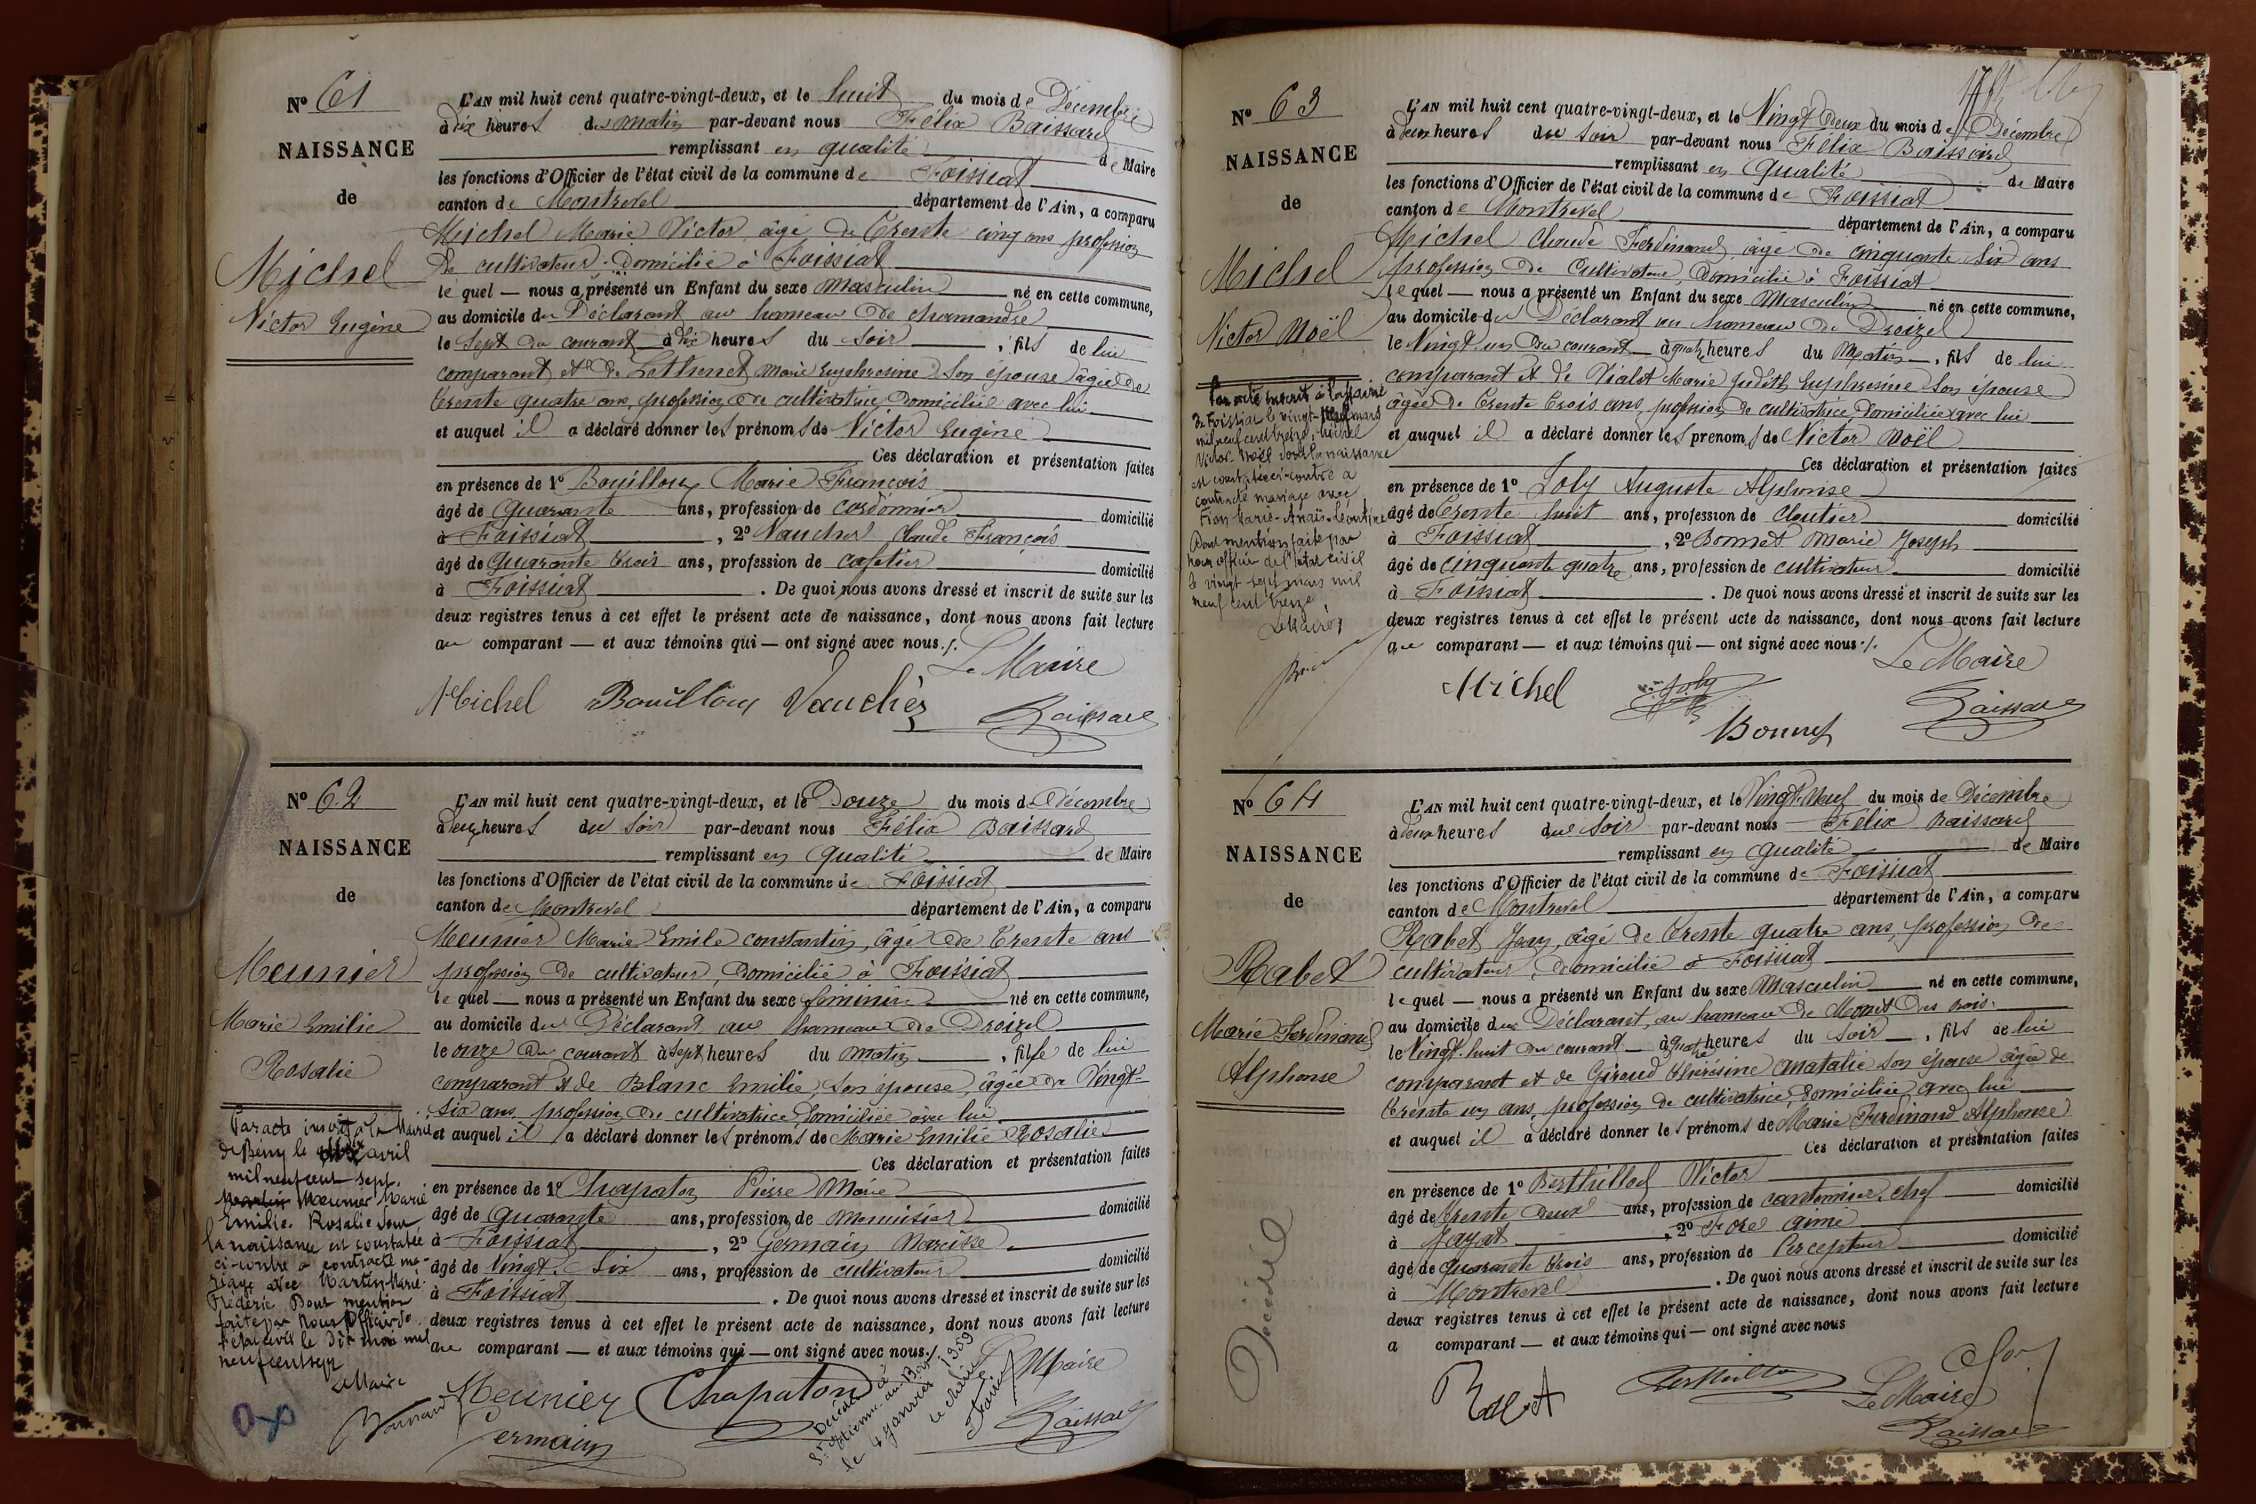 N° 61
NAISSANCE
de
Michel
Victor Eugène
L'AN mil huit cent quatre-vingt-deux, et le huit du mois de Décembre
à dix heures du matin par-devant nous Félix Baissard
remplissant en qualité de Maire
les fonctions d'Officier de l'état civil de la commune de Foissiat
canton de Montrevel département de l'Ain, a comparu
Michel Marie Victor, âgé de trente cinq ans profession
de cultivateur, domicilié à Foissiat
le quel — nous a présenté un Enfant du sexe masculin né en cette commune,
au domicile du Déclarant au hameau de
le sept du courant à dix heures du soir, fils de lui
comparant et de Marie Euphrosine son épouse âgée de
trente quatre ans, profession de cultivatrice, domiciliée avec lui
et auquel il a déclaré donner les prénoms de Victor Eugène
Ces déclaration et présentation faites
en présence de 1° Bouilloux Marie François
âgé de quarante ans, profession de cordonnier domicilié
à Foissiat, 2° Vaucher Claude François
âgé de quarante trois ans, profession de cafetier domicilié
à Foissiat. De quoi nous avons dressé et inscrit de suite sur les
deux registres tenus à cet effet le présent acte de naissance, dont nous avons fait lecture
au comparant — et aux témoins qui — ont signé avec nous./.
Le Maire
Michel Bouilloux Baissard
N° 62
NAISSANCE
de
Meunier
Marie Emilie
Rosalie
L'AN mil huit cent quatre-vingt-deux, et le Douze du mois de Décembre
à deux heures du soir par-devant nous Félix Baissard
remplissant en qualité de Maire
les fonctions d'Officier de l'état civil de la commune de Foissiat
canton de Montrevel département de l'Ain, a comparu
Meunier Marie Emile Constantin, âgé de trente ans
profession de cultivateur, domicilié à Foissiat
le quel — nous a présenté un Enfant du sexe féminin né en cette commune,
au domicile du Déclarant au hameau de Droizel
le onze du courant à sept heures du matin, fille de lui
comparant et de Blanc Emilie son épouse, âgée de vingt-
six ans, profession de cultivatrice, domiciliée avec lui
et auquel il a déclaré donner les prénoms de Marie Emilie Rosalie
Ces déclaration et présentation faites
en présence de 1° Chapaton Pierre Marie
âgé de quarante ans, profession de menuisier domicilié
à Foissiat, 2° Germain Narcisse
âgé de vingt-six ans, profession de cultivateur domicilié
à Foissiat. De quoi nous avons dressé et inscrit de suite sur les
deux registres tenus à cet effet le présent acte de naissance, dont nous avons fait lecture
au comparant — et aux témoins qui — ont signé avec nous./.
Le Maire
Meunier Chapaton Baissard
Germain
Par acte inscrit à la Mairie
de Bény le dix avril
mil neuf cent sept.
Meunier Marie
Emilie Rosalie dont
la naissance est constatée
ci-contre a contracté ma-
riage avec Martin Marie
Frédéric. Dont mention
faite par Nous Officier de
l'état civil le dix mai mil
neuf cent sept
Le Maire
Décédée à
St Etienne-du-Bois
le 4 janvier 1959
N° 63
NAISSANCE
de
Michel
Victor Noël
L'AN mil huit cent quatre-vingt-deux, et le Vingt Deux du mois de Décembre
à deux heures du soir par-devant nous Félix Baissard
remplissant en qualité de Maire
les fonctions d'Officier de l'état civil de la commune de Foissiat
canton de Montrevel département de l'Ain, a comparu
Michel Claude Ferdinand, âgé de cinquante six ans
profession de cultivateur, domicilié à Foissiat
le quel — nous a présenté un Enfant du sexe masculin né en cette commune,
au domicile du Déclarant au hameau de Droizel
le vingt un du courant à quatre heures du matin, fils de lui
comparant et de Vialet Marie Judith Euphrosine son épouse
âgée de trente trois ans, profession de cultivatrice, domiciliée avec lui
et auquel il a déclaré donner les prénoms de Victor Noël
Ces déclaration et présentation faites
en présence de 1° Joly Auguste Alphonse
âgé de trente huit ans, profession de cloutier domicilié
à Foissiat, 2° Bonnet Marie Joseph
âgé de cinquante quatre ans, profession de cultivateur domicilié
à Foissiat. De quoi nous avons dressé et inscrit de suite sur les
deux registres tenus à cet effet le présent acte de naissance, dont nous avons fait lecture
au comparant — et aux témoins qui — ont signé avec nous./.
Le Maire
Michel Joly Baissard
Bonnet
Par acte inscrit à la mairie
de Foissiat le vingt-sept mars
mil neuf cent treize, Michel
Victor-Noël dont la naissance
est constatée ci-contre a
contracté mariage avec
Marie-Anaïs-Léontine
Dont mention faite par
nous officier de l'état civil
le vingt sept mars mil
neuf cent treize,
Le Maire,
N° 64
NAISSANCE
de
Rabet
Marie Ferdinand
Alphonse
Décédé
L'AN mil huit cent quatre-vingt-deux, et le Vingt-Neuf du mois de Décembre
à deux heures du soir par-devant nous Félix Baissard
remplissant en qualité de Maire
les fonctions d'Officier de l'état civil de la commune de Foissiat
canton de Montrevel département de l'Ain, a comparu
Rabet Jean, âgé de trente quatre ans, profession de
cultivateur, domicilié à Foissiat
le quel — nous a présenté un Enfant du sexe masculin né en cette commune,
au domicile du Déclarant, au hameau de Mont des bois
le vingt-huit du courant à quatre heures du soir, fils de lui
comparant et de Giraud Thérésine Anatalie son épouse âgée de
trente un ans, profession de cultivatrice, domiciliée avec lui
et auquel il a déclaré donner les prénoms de Marie Ferdinand Alphonse
Ces déclaration et présentation faites
en présence de 1° Berthillod Victor
âgé de trente deux ans, profession de cantonnier chef domicilié
à Jayat, 2° Foré Aimé
âgé de quarante trois ans, profession de Percepteur domicilié
à Montrevel. De quoi nous avons dressé et inscrit de suite sur les
deux registres tenus à cet effet le présent acte de naissance, dont nous avons fait lecture
a comparant — et aux témoins qui — ont signé avec nous
Le Maire
Rabet Baissard